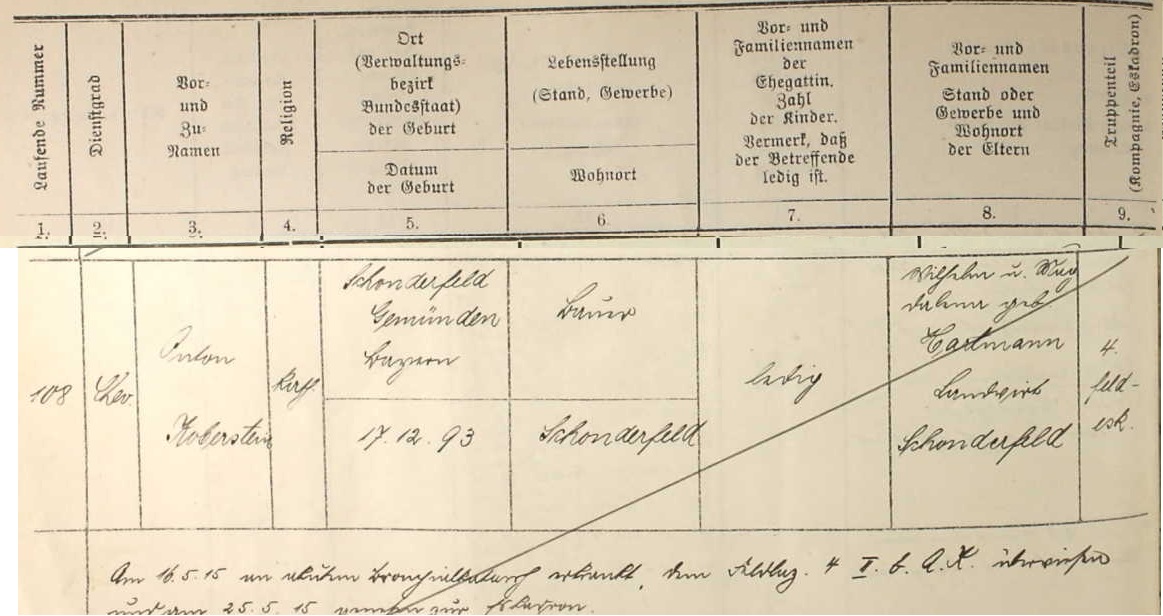 Laufende Nummer
Dienstgrad
Vor=
und
Zu=
Namen
Religion
Ort
(Verwaltungs=
bezirk
Bundesstaat)
der Geburt
Datum
der Geburt
Lebensstellung
(Stand, Gewerbe)
Wohnort
Vor= und
Familiennamen
der
Ehegattin.
Zahl
der Kinder.
Vermerk, daß
der Betreffende
ledig ist.
Vor= und
Familiennamen
Stand oder
Gewerbe und
Wohnort
der Eltern
Truppenteil
(Kompagnie, Eskadron)
1. 2. 3. 4. 5. 6. 7. 8. 9.
108
Chev.
Anton
Koberstein
kath.
Schonderfeld
Gemünden
Bayern
17. 12. 93
Bauer
Schonderfeld
ledig
Wilhelm u. Mag
dalena geb
Hartmann
Landwirt
Schonderfeld
4.
Feld-
esk.
Am 16.5.15 an akutem Bronchialkatarrh erkrankt, dem Feldlaz. 4 II. b. A.K. überwiesen
und am 25.5.15 zur Eskadron.